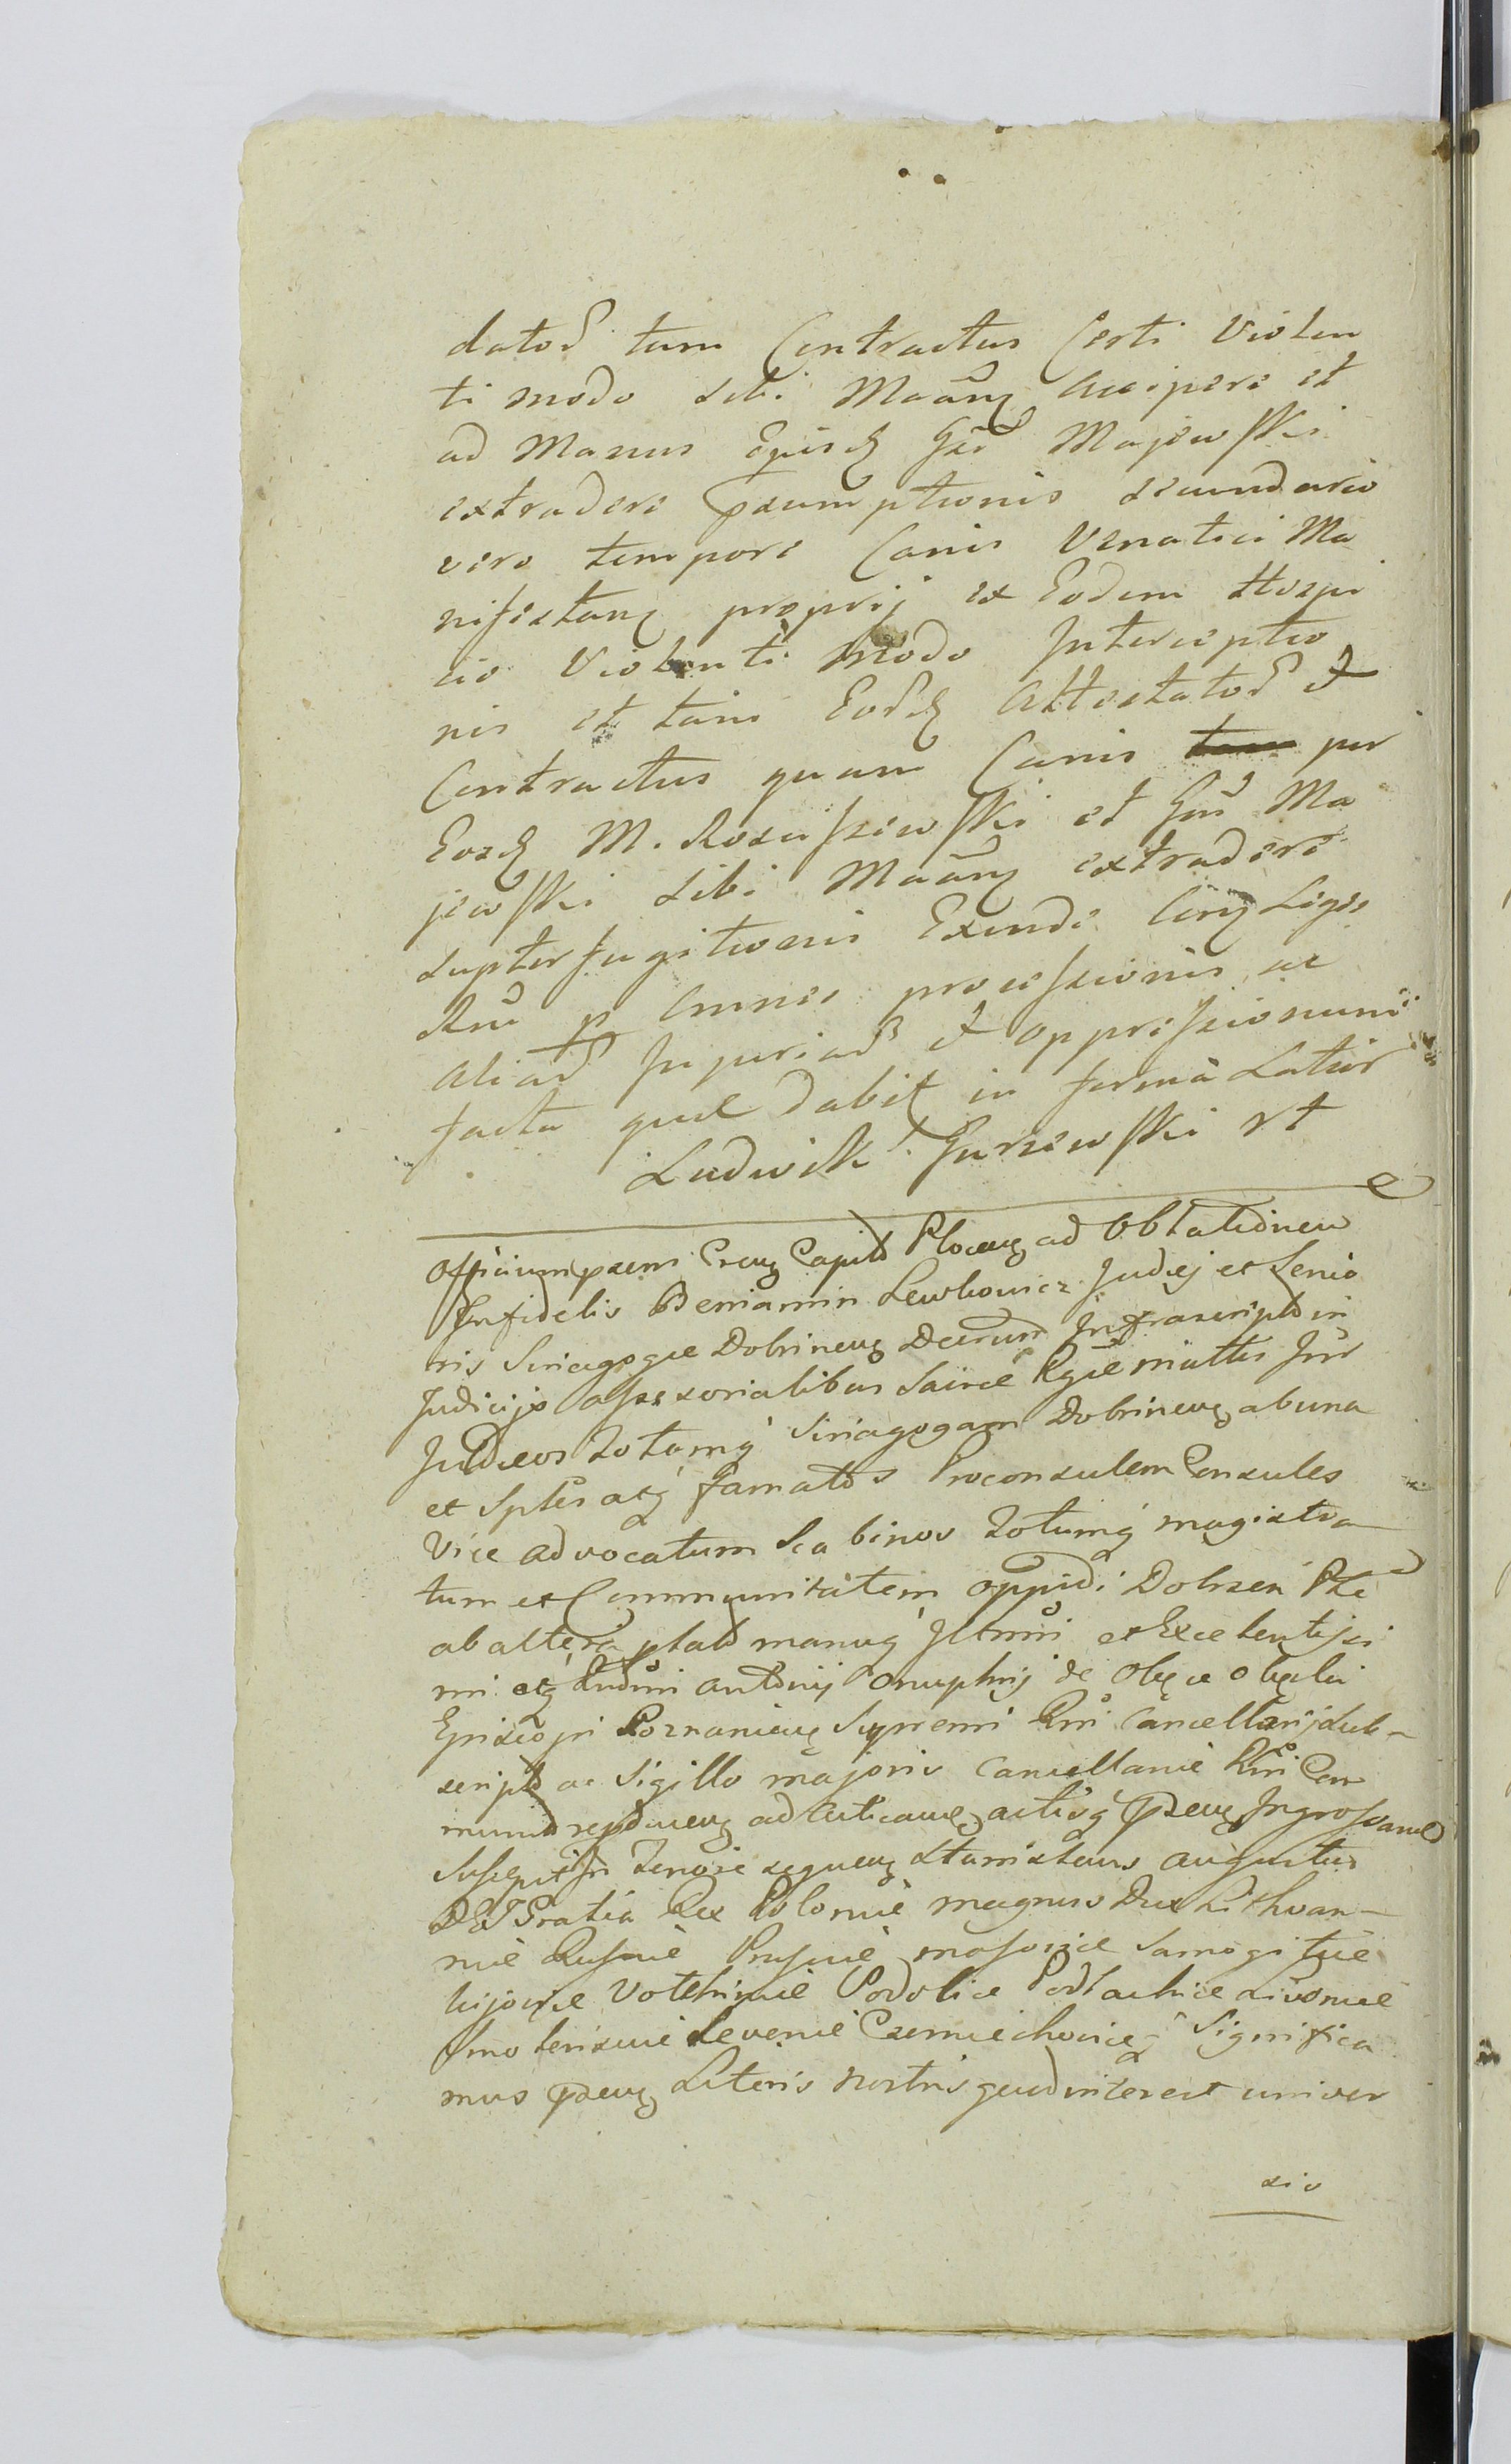 datos tum Contractus Certi Violen
ti modo sibi Maãnȝ accipere et
ad Manus Ejusdȝ Gsi Majewski
extradere psumptionis secundario
vero tempore Canis Venatici Ma
nifestanȝ proprij ex Eodem Hospi
cio Violenti modo Interceptio
nis et tam Eordȝ Attestatos et
Contractus quam Canis per
Eosdȝ M. Rosciszewski et Gsi Ma
jewski sibi Maãnȝ extradere
supterfugitionis Exinde Legis
Rni p omnes processionis ac
aliar Injuriar et oppressionum
facta quæ dabit in forma Latior
Ludwik Gurzewski rt
Officium psens Crenȝ Capitl Plocenȝ ad Oblationem
Infidelis Beniamin Lewkowicz Judej et Senio
ris Sinagogæ Dobrinenȝ Decretum Infrascriptl in
Judicijs assessorialibus Sacræ Rgiæ mattis Inr
Judæos totamq Sinagogam Dobrinenȝ ab una
et Sptles atq famatos Proconsulem Consules
Vice advocatum Scabinos totumq magistra
tum et Communitatem oppidi Dobrzen
ab altera ptlat manuq Illmi et Excelentissi
mi atq Rndmi antonij onuphrij de Okęcie Okęcki
Episcopi Posnanienȝ Supremi Rni Cancellarij sub-
script ac Sigillo majoris Cancellariæ Rni Com
munit ad acticanȝ actisq psenȝ Ingrossand
Suscepit In Tenore sequenȝ Stanislaus augustus
DEI Gratia Rex Poloniæ magnus Dux Lithvan-
niæ Russiæ Prussiæ masoviæ Samogitiæ
kijoviæ Volchiniæ Podoliæ Podlachiæ Livoniæ
Smolensciæ Seveniæ Czerniechoviæq Significa
mus psenȝ Literis nostris quor interest univer
sis